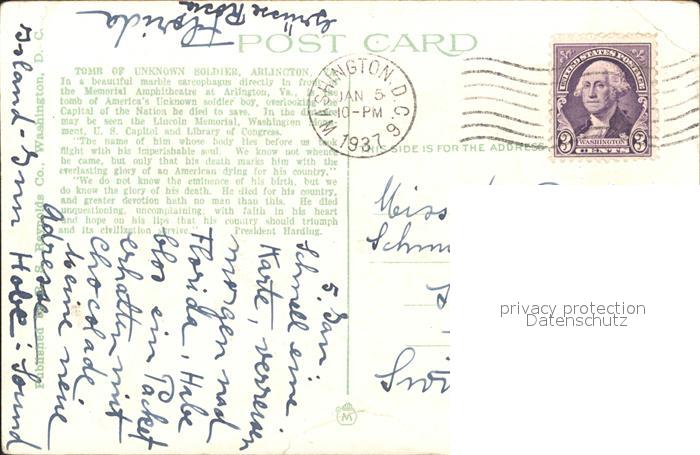 POST CARD
TOMB OF UNKNOWN SOLDIER, ARLINGTON.
In a beautiful marble sarcophagus directly in front
the Memorial Amphitheatre at Arlington, Va.,
tomb of America's Unknown soldier boy, overlooking
Capital of the Nation he died to save. In the
may be seen the Lincoln Memorial, Washington
ment, U. S. Capitol and Library of Congress.
"The name of him whose body lies before us took
flight with his imperishable soul. We know not whence
he came, but only that his death marks him with the
everlasting glory of an American dying for his country."
"We do not know the eminence of his birth, but we
do know the glory of his death. He died for his country,
and greater devotion hath no man this. He died
unquestioning, uncomplaining, with faith in his heart
and hope on his lips that his country should triumph
and its civilization survive." President Harding.
Published by Reynolds Co., Washington, D. C.
WASHINGTON, D.C.
JAN 5
10-PM
1937
THIS SIDE IS FOR THE ADDRESS
UNITED STATES POSTAGE
3 3
WASHINGTON
5. Jan.
Schnell eine
Karte, verreisen
morgen nach
Florida, Habe
blos ein Packet
erhalten mit
Chocolade
Meine neue
Adresse
Island-Inn Hobe-Sound
Florida
Grüsse Rosa
Miss
privacy protection
Datenschutz